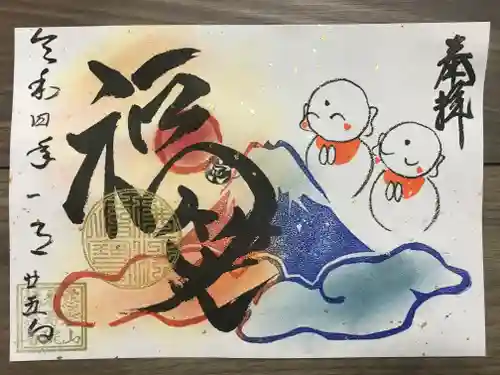 奉拝
福笑
令和四年一月廿五日